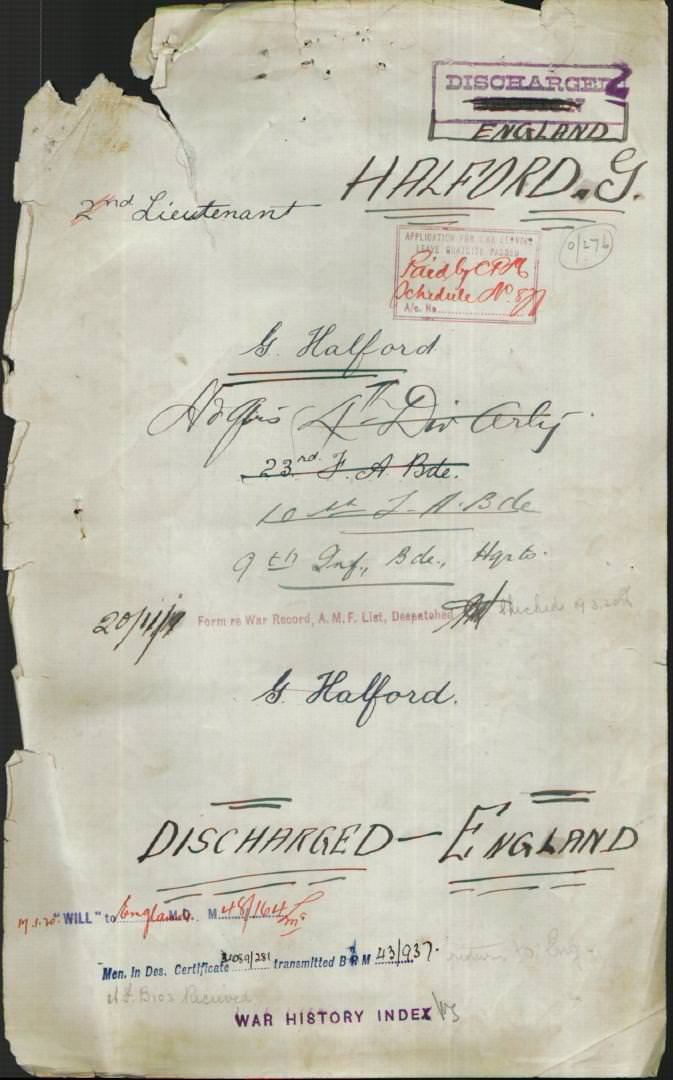 DISCHARGED 2
ENGLAND
HALFORD. G.
2nd Lieutenant
APPLICATION FOR WAR SERVICE
LEAVE GRATUITY PASSED
Paid by
Schedule No.
A/c. No.
0/276
G. Halford
Hdqrs 4th Div Arty
23rd. F. A. Bde.
10th F. A. Bde
9th Inf., Bde., Hqrts.
20/11/19 Form re War Record, A. M. F. List, Despatched
G. Halford.
DISCHARGED — ENGLAND
"WILL" to England M.D. M 48/164
Men. in Des. Certificate transmitted B R M 43/937.
A.F. B103 Received
WAR HISTORY INDEX